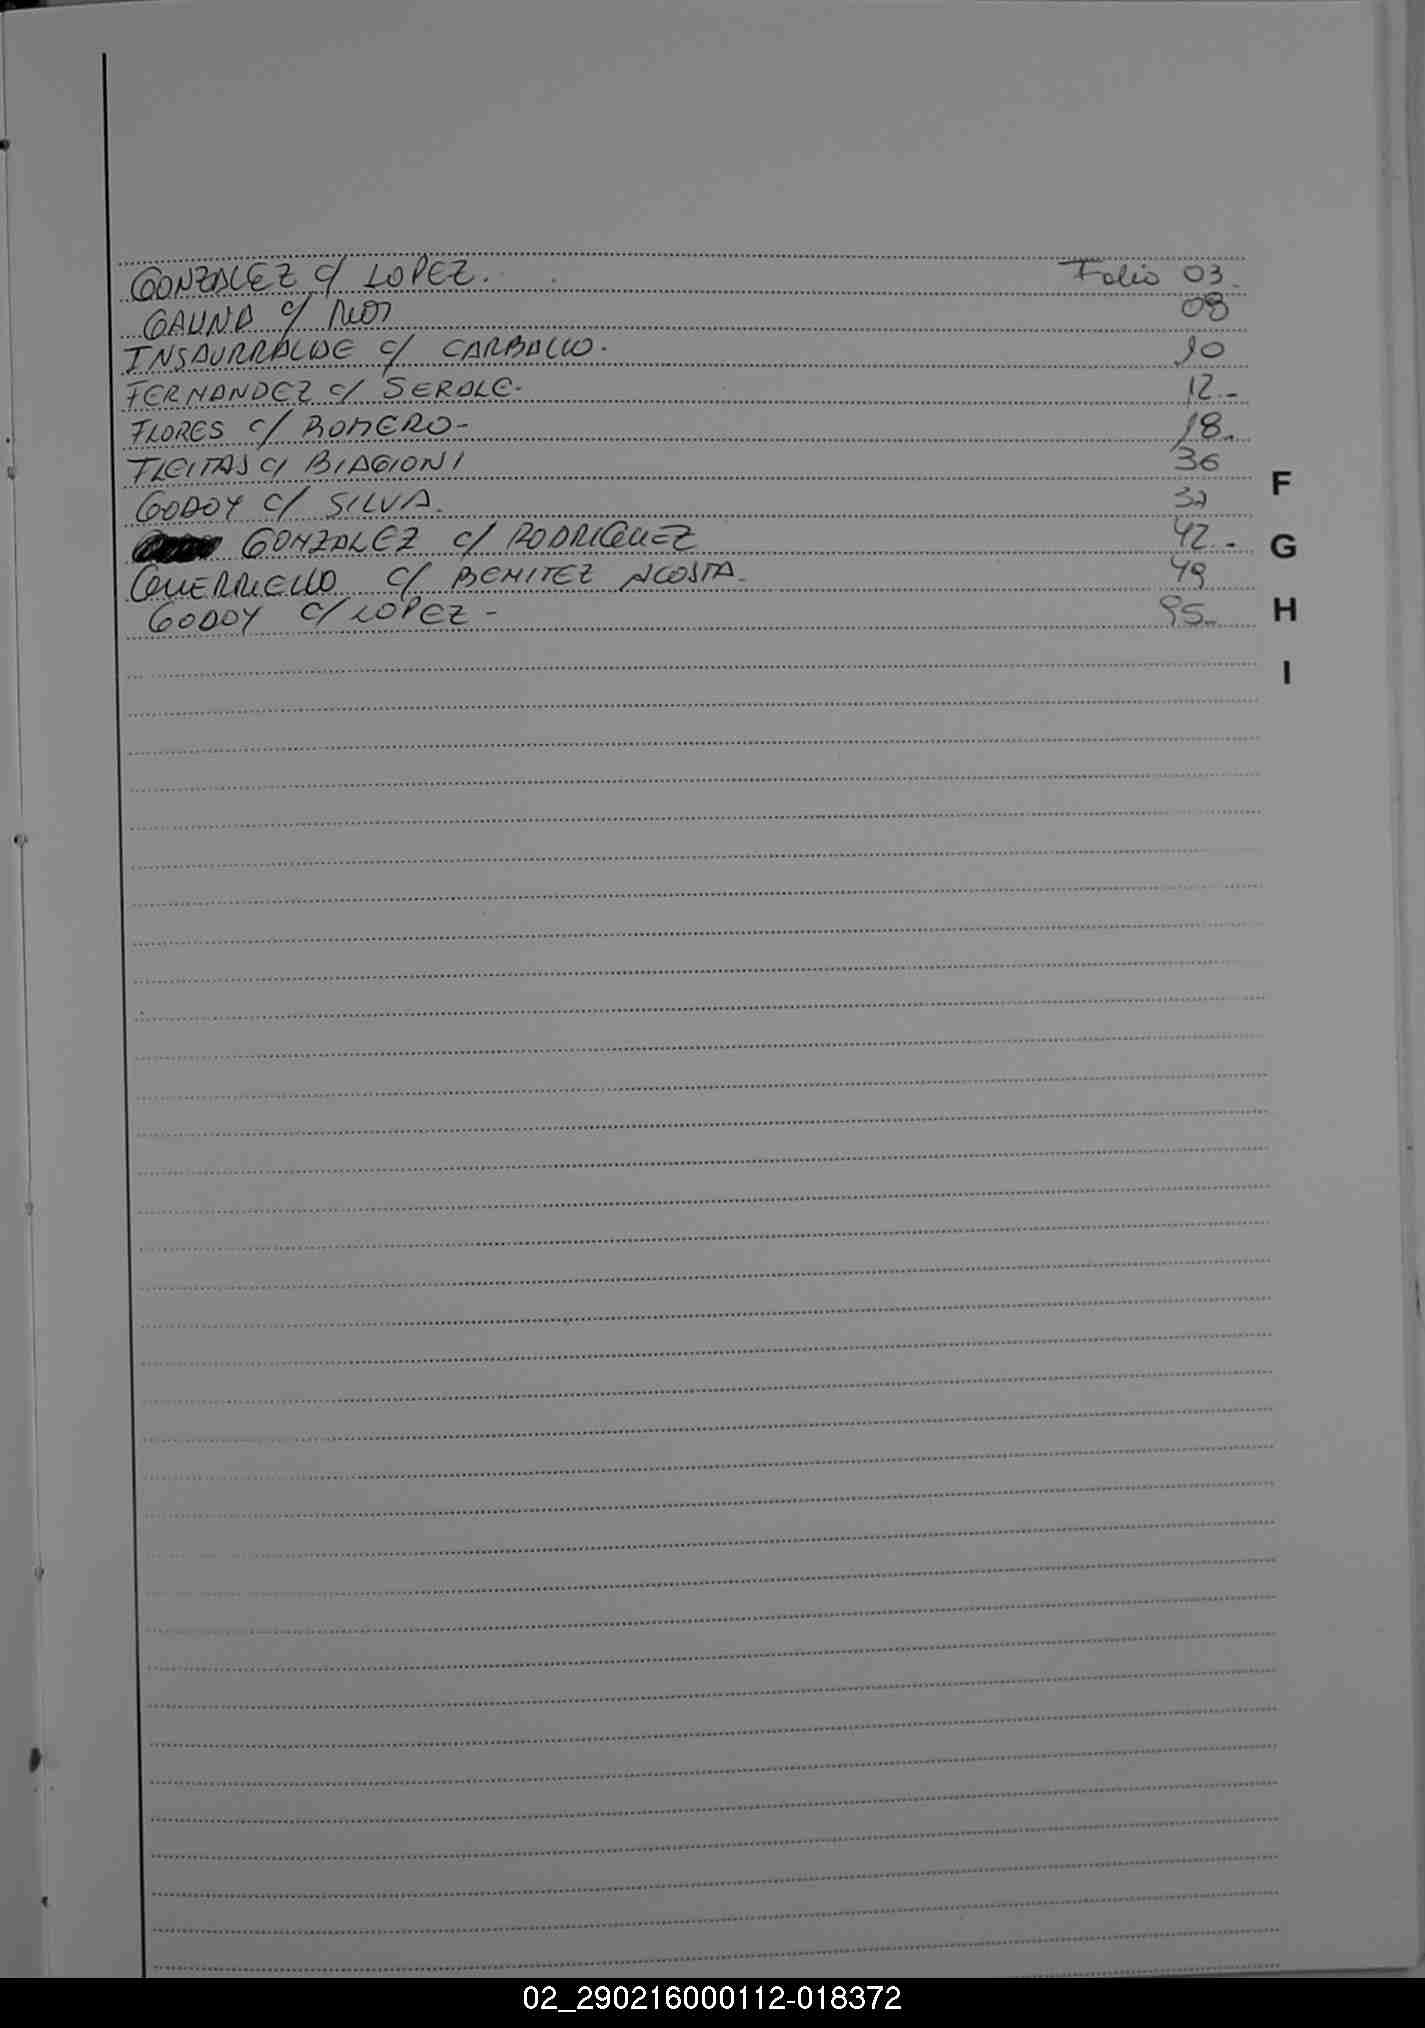 GONZALEZ c/ LOPEZ. Folio 03.
GAUNA c/ 08
INSAURRALDE c/ CARBALLO. 10
FERNANDEZ c/ SEROLE. 12.-
FLORES c/ ROMERO- 18.
FLEITAS c/ BIAGIONI 36
GODOY c/ SILVA.
GONZALEZ c/ RODRIGUEZ 42.-
GUERRIELLO c/ BENITEZ ACOSTA. 49
GODOY c/ LOPEZ- 95.
F
G
H
I
02_290216000112-018372